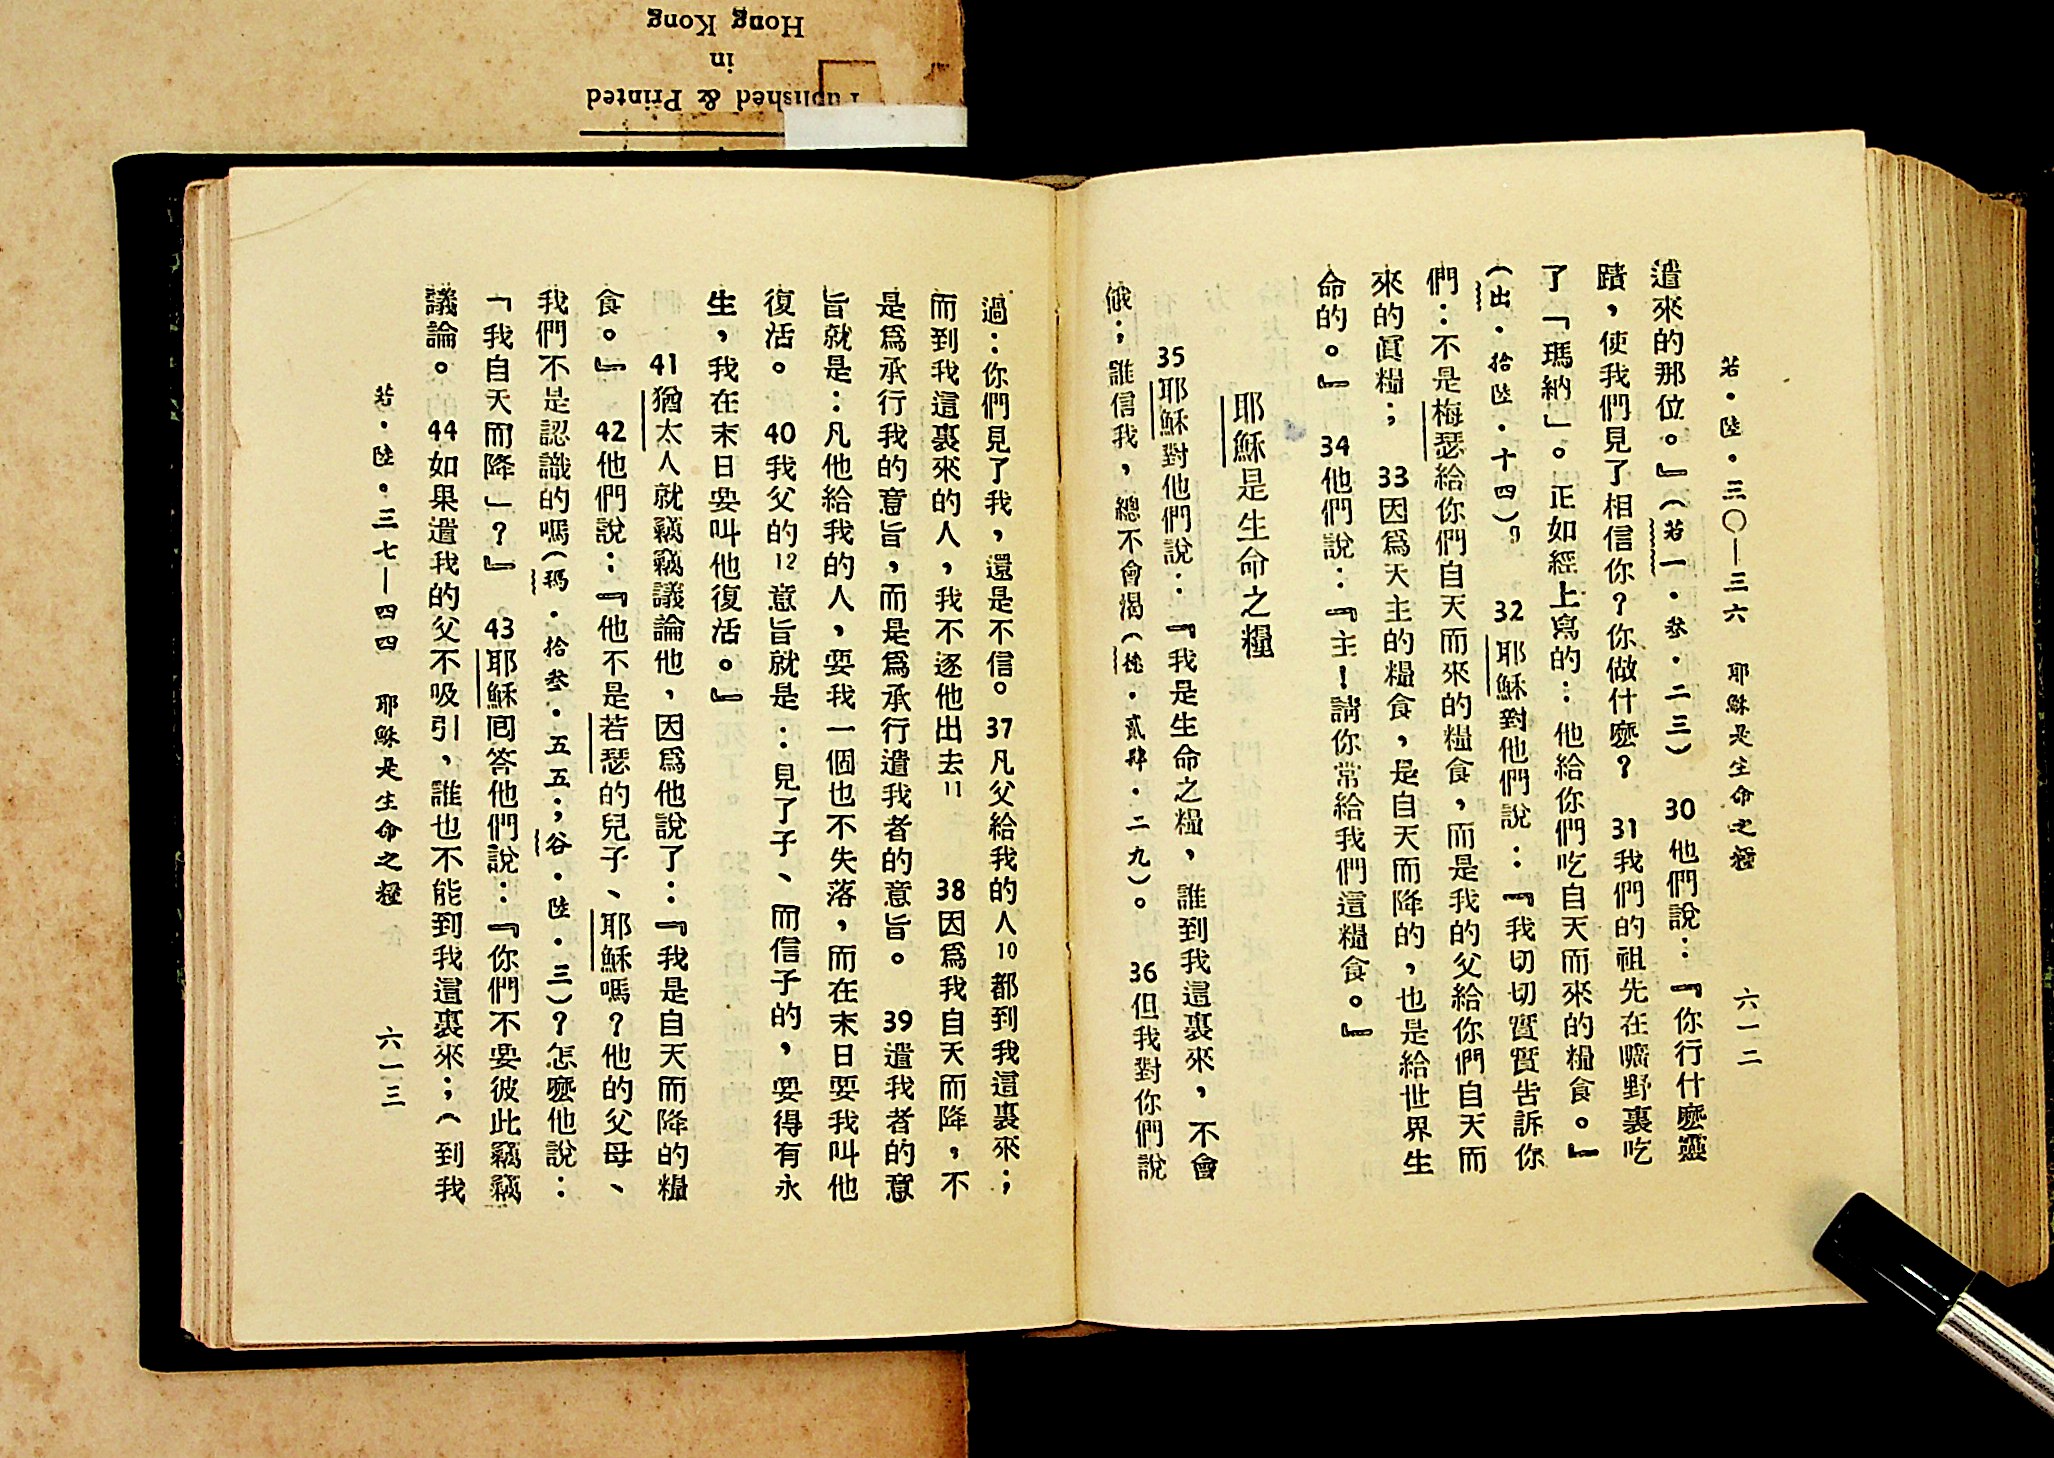 若．陸．三〇—三六　耶穌是生命之糧　六一二
遣來的那位。』（若一．叁．二三）　30他們說：『你行什麼靈
蹟，使我們見了相信你？你做什麼？　31我們的祖先在曠野裏吃
了「瑪納」。正如經上寫的：他給你們吃自天而來的糧食。』
（出．拾陸．十四）9　32耶穌對他們說：『我切切實實告訴你
們：不是梅瑟給你們自天而來的糧食，而是我的父給你們自天而
來的眞糧；　33因爲天主的糧食，是自天而降的，也是給世界生
命的。』　34他們說：『主！請你常給我們這糧食。』
耶穌是生命之糧
35耶穌對他們說：『我是生命之糧，誰到我這裏來，不會
餓；誰信我，總不會渴（德．貳肆．二九）。　36但我對你們說
過：你們見了我，還是不信。37凡父給我的人10都到我這裏來；
而到我這裏來的人，我不逐他出去11　38因爲我自天而降，不
是爲承行我的意旨，而是爲承行遣我者的意旨。　39遣我者的意
旨就是：凡他給我的人，要我一個也不失落，而在末日要我叫他
復活。　40我父的12意旨就是：見了子、而信子的，要得有永
生，我在末日要叫他復活。』
41猶太人就竊竊議論他，因爲他說了：『我是自天而降的糧
食。』　42他們說：『他不是若瑟的兒子、耶穌嗎？他的父母、
我們不是認識的嗎（瑪．拾叁．五五；谷．陸．三）？怎麼他說：
「我自天而降」？』　43耶穌囘答他們說：『你們不要彼此竊竊
議論。　44如果遣我的父不吸引，誰也不能到我這裏來；（到我
若．陸．三七—四四　耶穌是生命之糧　六一三
Published & Printed
in
Hong Kong